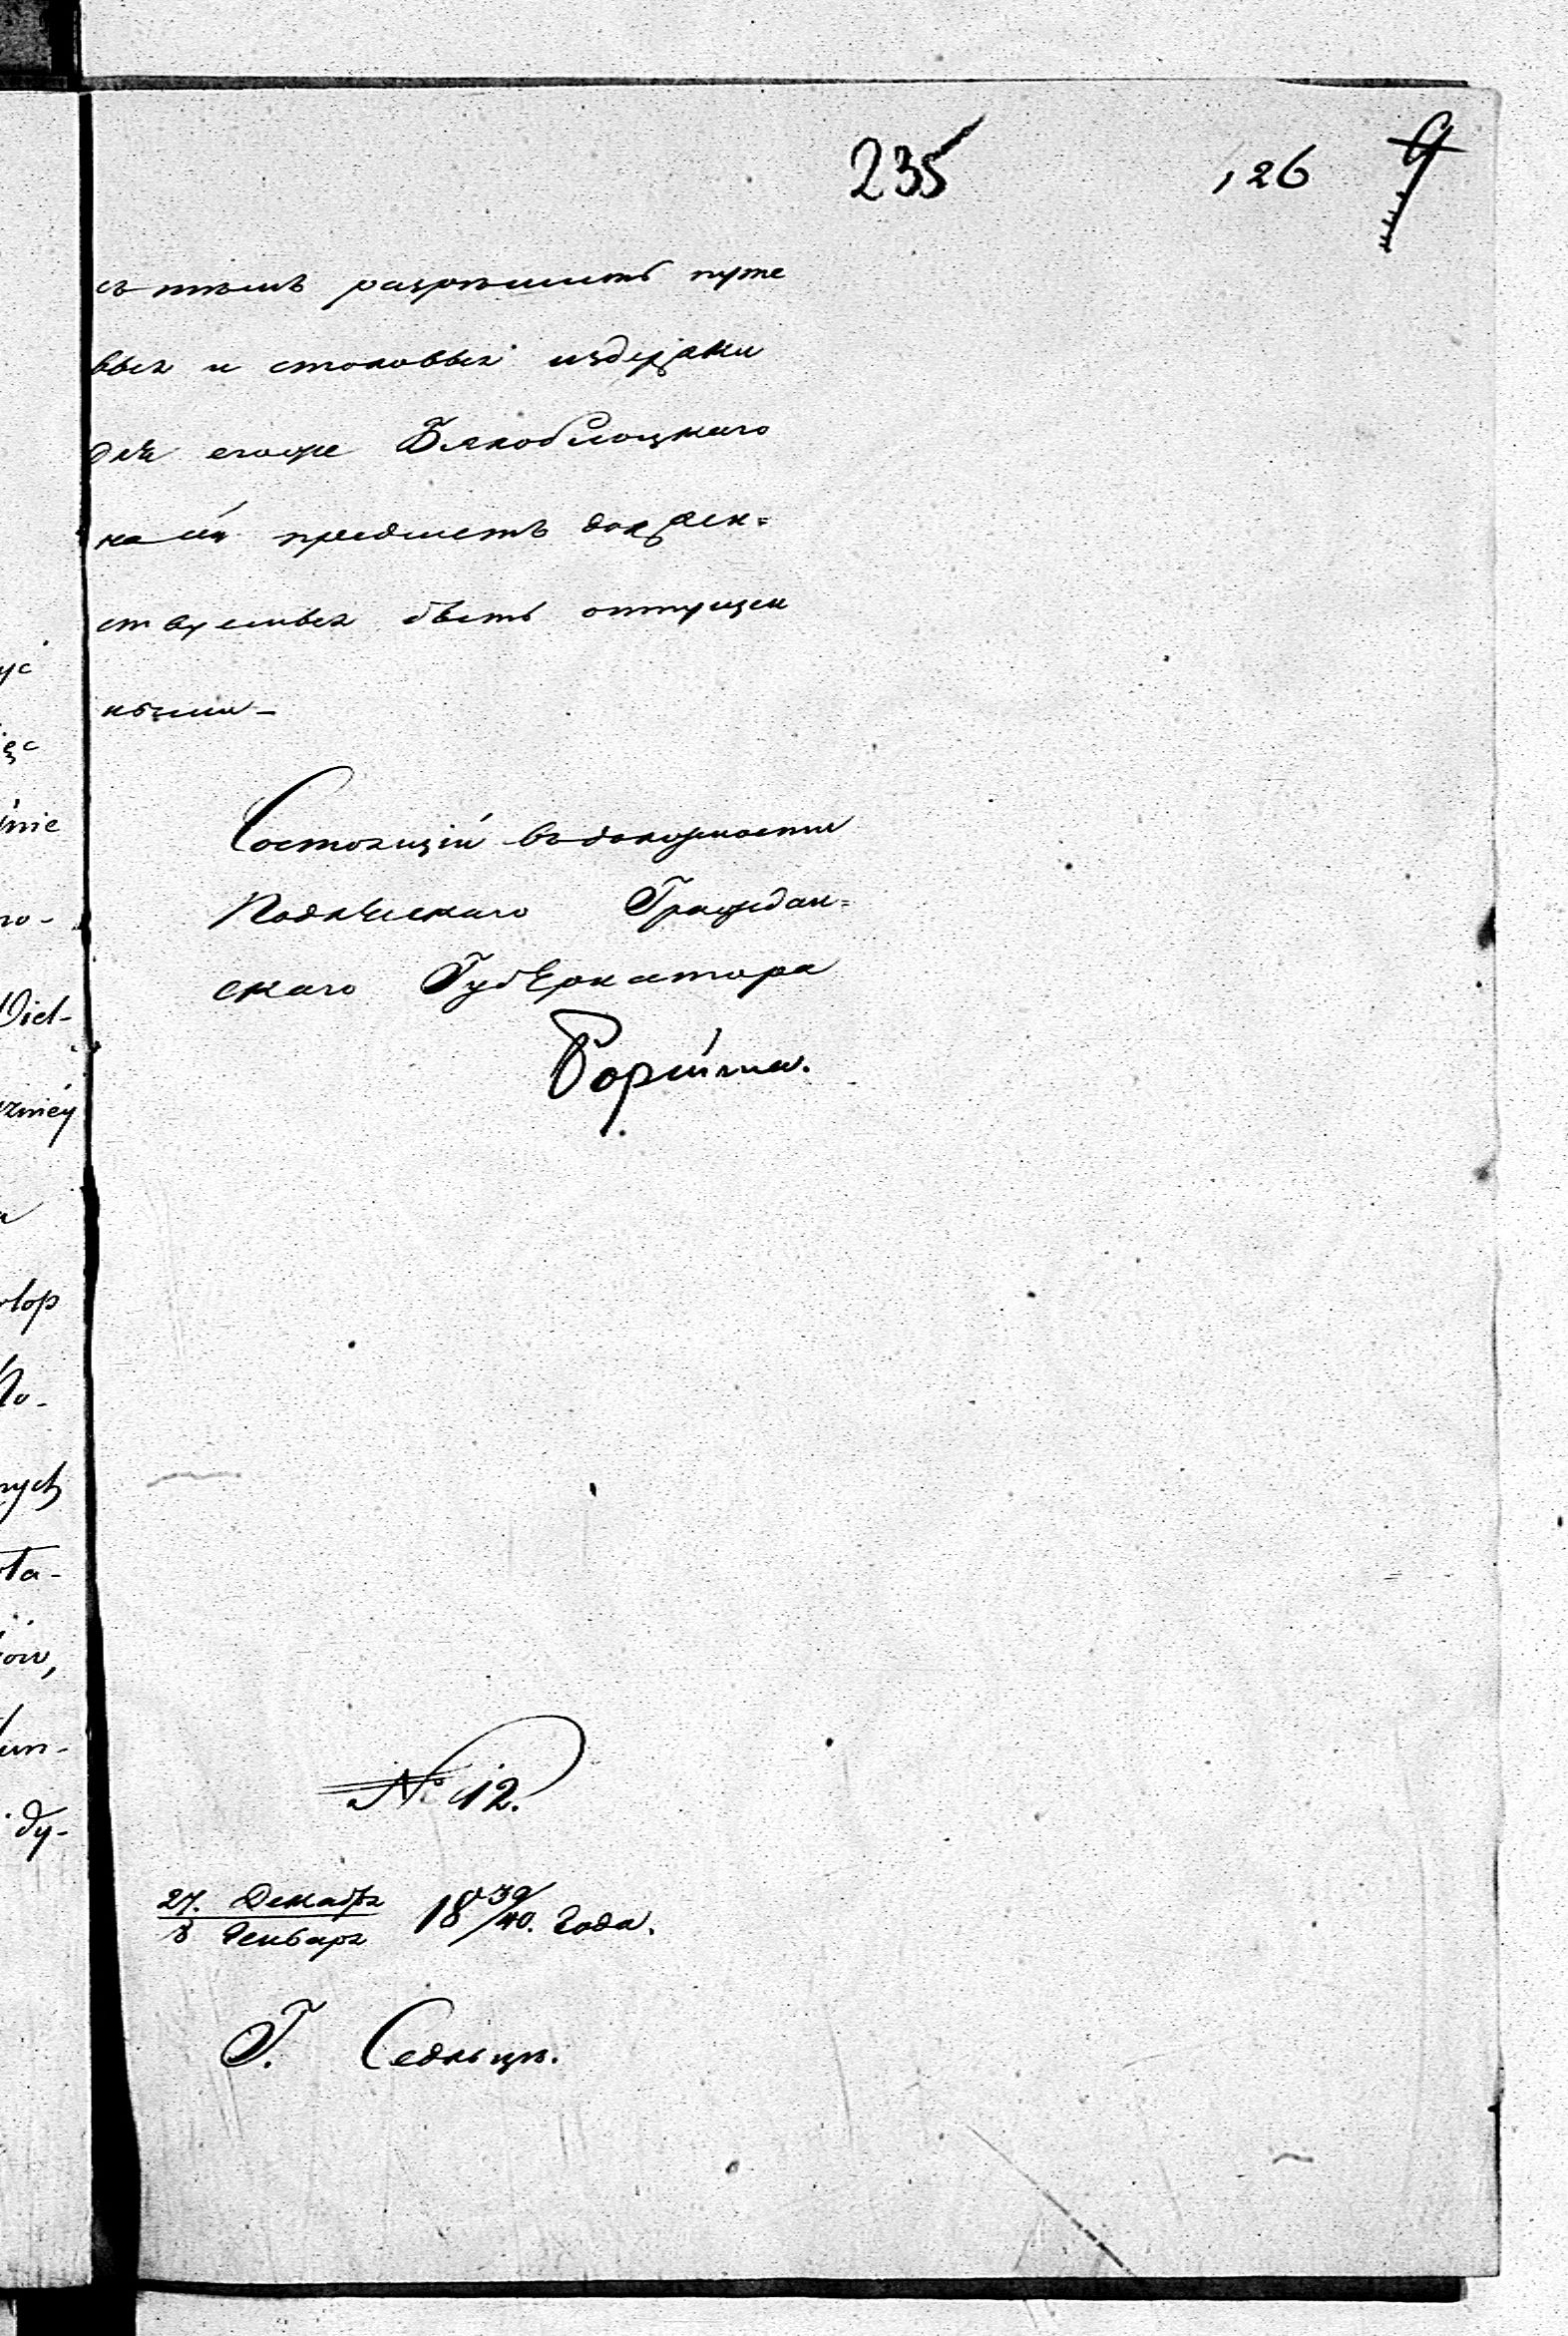 235 126 9
съ тѣмъ разрѣшить путе
выя и столовыя издержки
для егоже Бялоблоцкаго
на сей предметъ должен=
ствуемыя быть отпущен
ными—
Состоящій въ должности
Подляскаго Граждан=
скаго Губернатора
№ 12.
27. Декабря
8 Генваря 18 39/40. Года.
Г. Седльцъ.